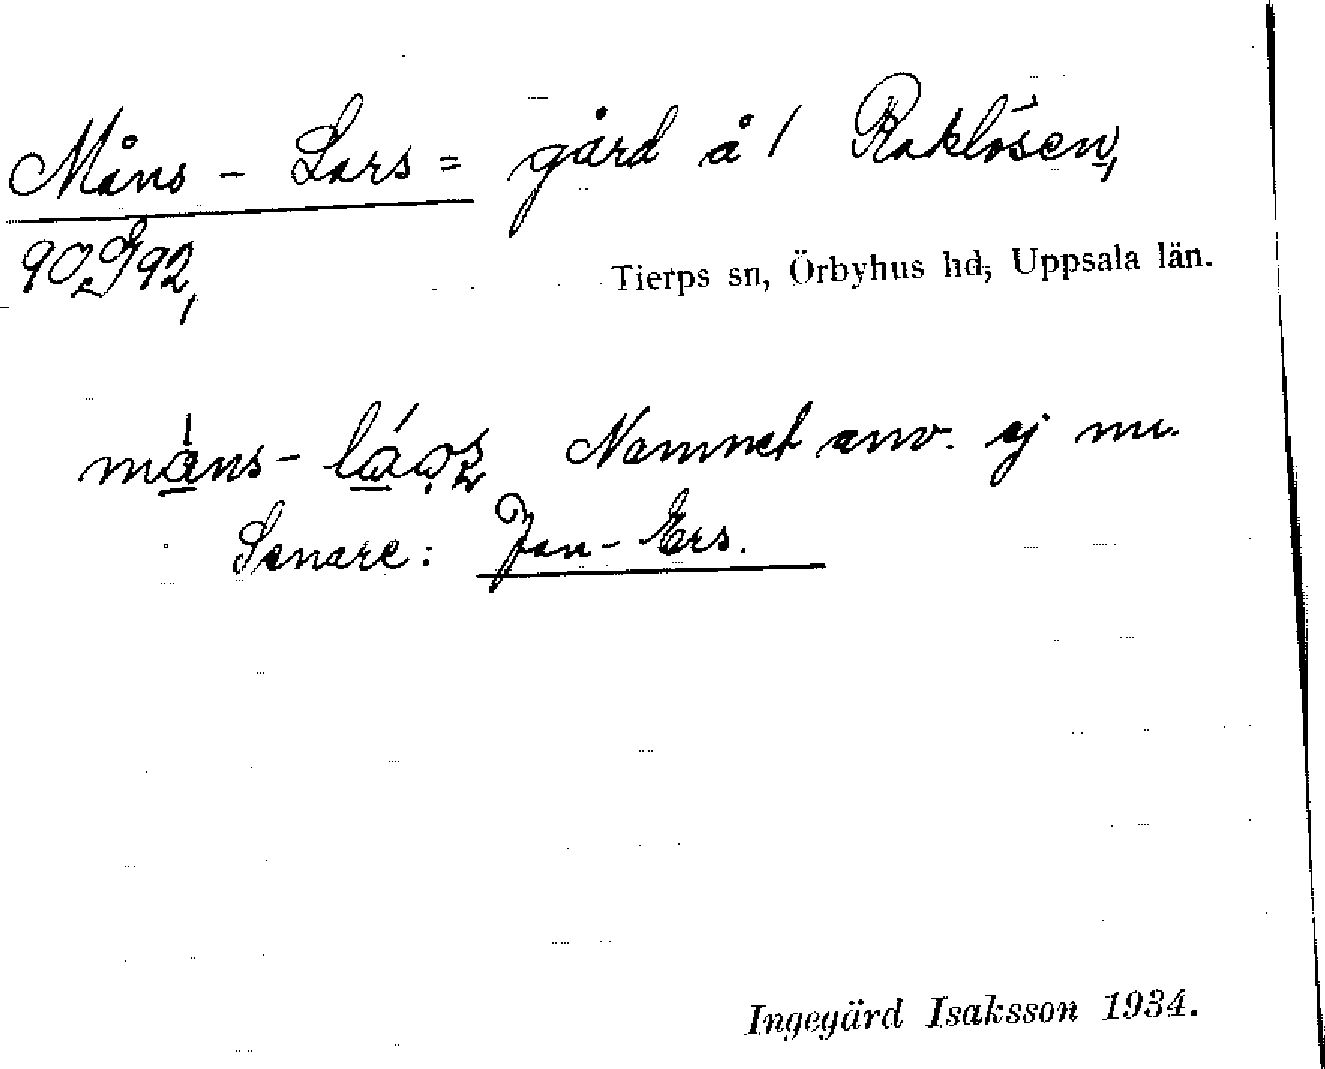 Måns - Lars = gård å 1 Roklösen,
90 G 92,
Tierps sn, Örbyhus hd, Uppsala län.
måns - Namnet anv. ej nu.
Senare: Jan - Ers.
Ingegärd Isaksson 1934.